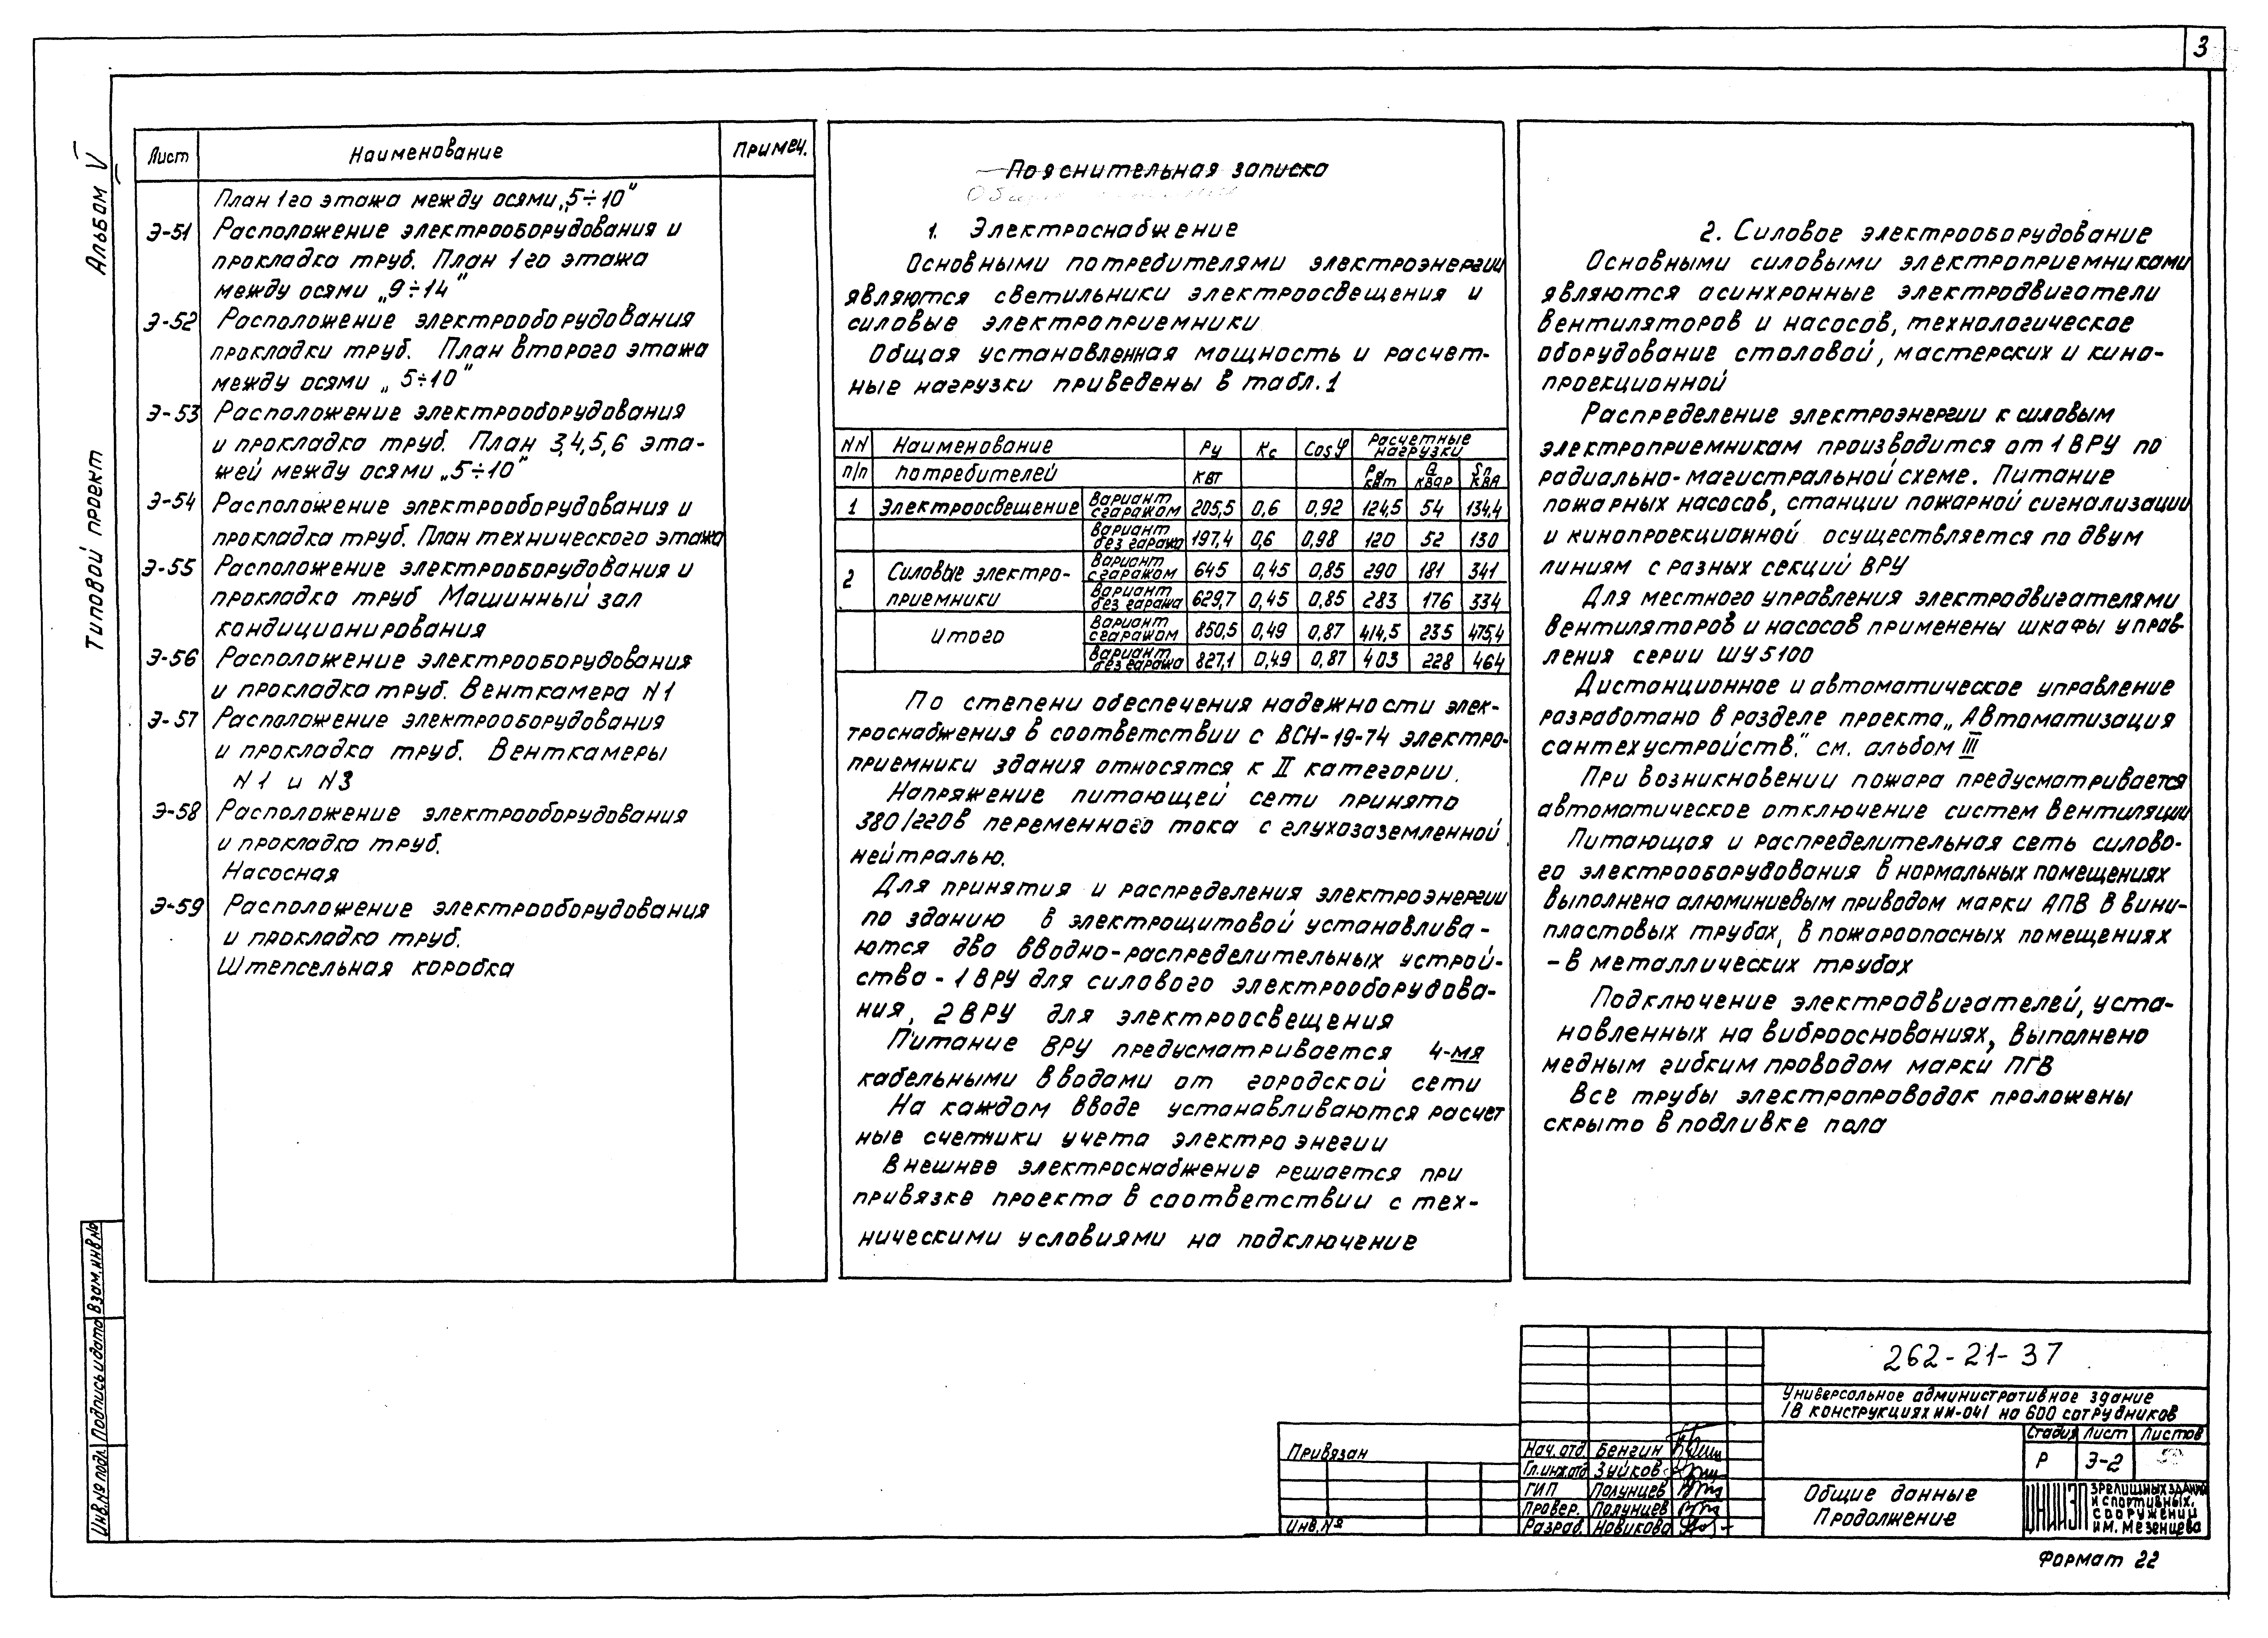 3
Альбом V
Типовой проект
Лист Наименование Примеч.
План 1го этажа между осями „5÷10"
Э-51 Расположение электрооборудования и
прокладка труб. План 1го этажа
между осями „9÷14"
Э-52 Расположение электрооборудования
прокладки труб. План второго этажа
между осями „5÷10"
Э-53 Расположение электрооборудования
и прокладка труб. План 3,4,5,6 эта-
жей между осями „5÷10"
Э-54 Расположение электрооборудования и
прокладка труб. План технического этажа
Э-55 Расположение электрооборудования и
прокладка труб Машинный зал
кондиционирования
Э-56 Расположение электрооборудования
и прокладка труб. Венткамера N1
Э-57 Расположение электрооборудования
и прокладка труб. Венткамеры
N1 и N3
Э-58 Расположение электрооборудования
и прокладка труб.
Насосная
Э-59 Расположение электрооборудования
и прокладка труб.
Штепсельная коробка
Пояснительная записка
1. Электроснабжение
Основными потребителями электроэнергии
являются светильники электроосвещения и
силовые электроприемники
Общая установленная мощность и расчет-
ные нагрузки приведены в табл.1
NN Наименование Ру Кс Cosφ Расчетные нагрузки
п/п потребителей квт Рр квт Q квар Sп ква
1 Электроосвещение Вариант с гаражом 205,5 0,6 0,92 124,5 54 134,4
Вариант без гаража 197,4 0,6 0,98 120 52 130
2 Силовые электро- Вариант с гаражом 645 0,45 0,85 290 181 341
приемники Вариант без гаража 629,7 0,45 0,85 283 176 334
Итого Вариант с гаражом 850,5 0,49 0,87 414,5 235 475,4
Вариант без гаража 827,1 0,49 0,87 403 228 464
По степени обеспечения надежности элек-
троснабжения в соответствии с ВСН-19-74 электро-
приемники здания относятся к II категории.
Напряжение питающей сети принято
380/220в переменного тока с глухозаземленной
нейтралью.
Для принятия и распределения электроэнергии
по зданию в электрощитовой устанавлива-
ются два вводно-распределительных устрой-
ства - 1ВРУ для силового электрооборудова-
ния, 2ВРУ для электроосвещения
Питание ВРУ предусматривается 4-мя
кабельными вводами от городской сети
На каждом вводе устанавливаются расчет
ные счетчики учета электроэнегии
Внешнее электроснабжение решается при
привязке проекта в соответствии с тех-
ническими условиями на подключение
2. Силовое электрооборудование
Основными силовыми электроприемниками
являются асинхронные электродвигатели
вентиляторов и насосов, технологическое
оборудование столовой, мастерских и кино-
проекционной
Распределение электроэнергии к силовым
электроприемникам производится от 1ВРУ по
радиально-магистральной схеме. Питание
пожарных насосов, станции пожарной сигнализации
и кинопроекционной осуществляется по двум
линиям с разных секций ВРУ
Для местного управления электродвигателями
вентиляторов и насосов применены шкафы управ-
ления серии ШУ5100
Дистанционное и автоматическое управление
разработано в разделе проекта „Автоматизация
сантехустройств." см. альбом III
При возникновении пожара предусматривается
автоматическое отключение систем вентиляции
Питающая и распределительная сеть силово-
го электрооборудования в нормальных помещениях
выполнена алюминиевым приводом марки АПВ в вини-
пластовых трубах, в пожароопасных помещениях
- в металлических трубах
Подключение электродвигателей, уста-
новленных на виброоснованиях, выполнено
медным гибким проводом марки ПГВ
Все трубы электропроводок проложены
скрыто в подливке пола
Инв.№ подл. Подпись и дата Взам.инв№
Привязан
Инв.№
Нач.отд. Бенгин
Гл.инж.отд Зуйков
ГИП Полунцев
Провер. Полунцев
Разраб. Новикова
262-21-37
Универсальное административное здание
/В конструкциях ИИ-04/ на 600 сотрудников
Стадия Лист Листов
Р Э-2
Общие данные
Продолжение
ЦНИИЭП зрелищных зданий
и спортивных
сооружений
им. Мезенцева
Формат 22